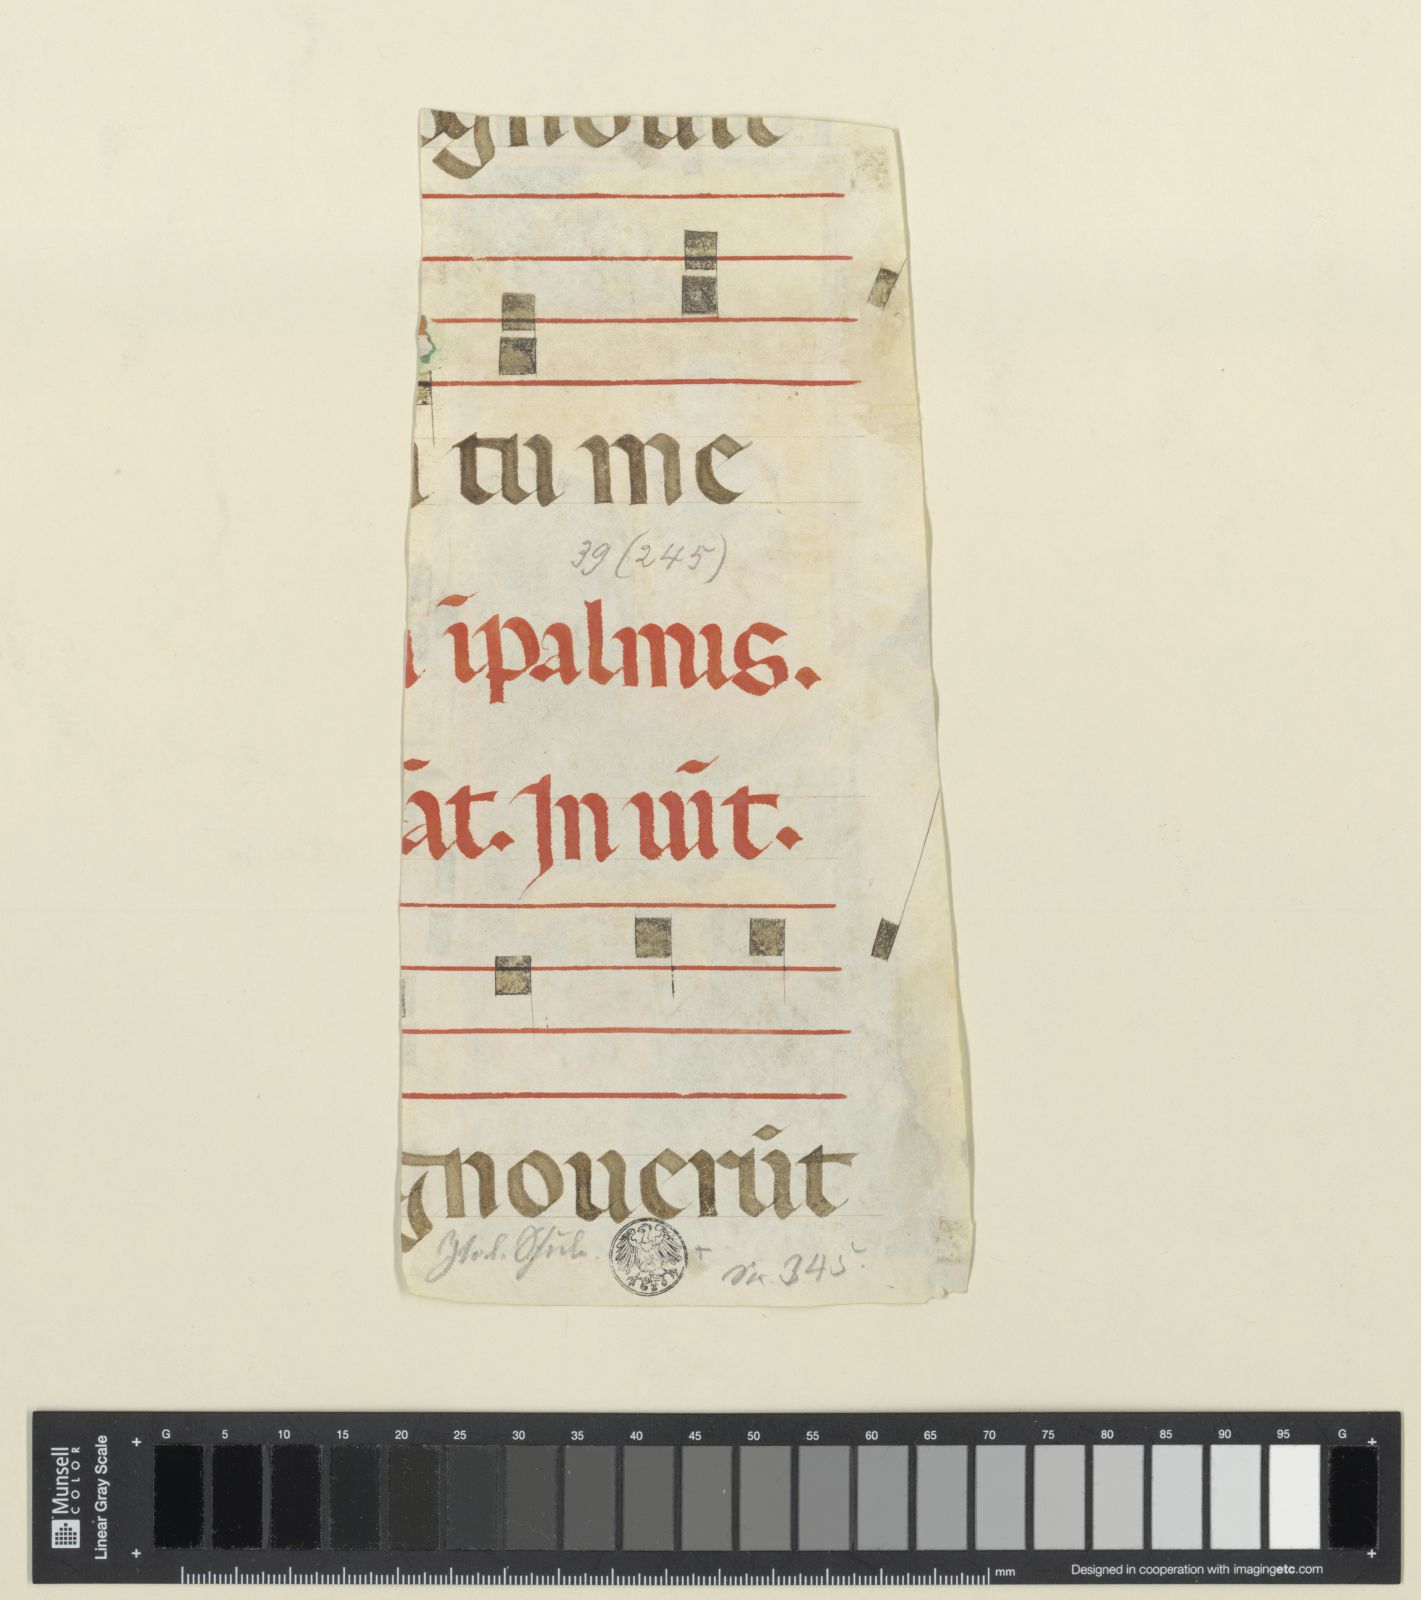 gnouit
tu me
39 (245)
īpalmis.
āt. In uīt.
gnouerūt
345.
Munsell
COLOR
Linear Gray Scale
G 5 10 15 20 25 30 35 40 45 50 55 60 65 70 75 80 85 90 95 G
mm
Designed in cooperation with imagingetc.com